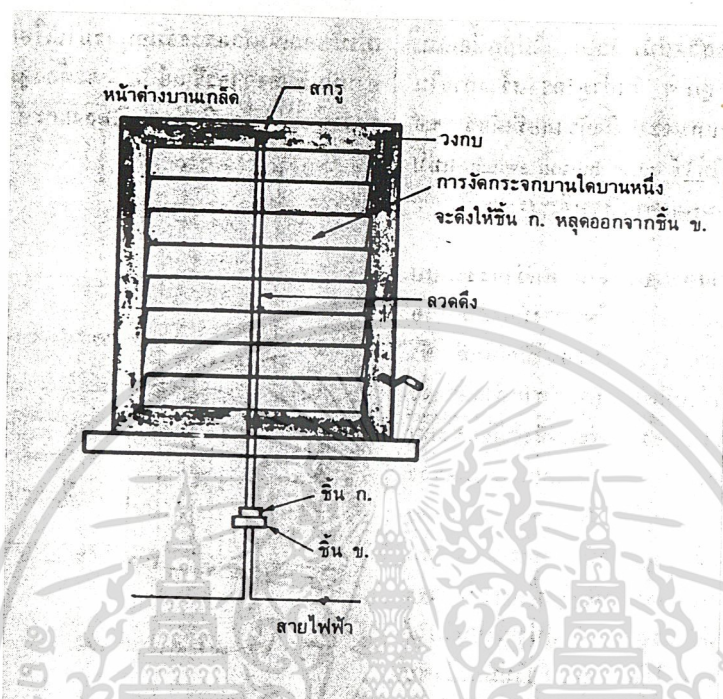 สกรู
หน้าต่างบานเกล็ด
วงกบ
การงัดกระจกบานใดบานหนึ่ง
จะดึงให้ชิ้น ก. หลุดออกจากชิ้น ข.
ลวดดึง
ชิ้น ก.
ชิ้น ข.
สายไฟฟ้า